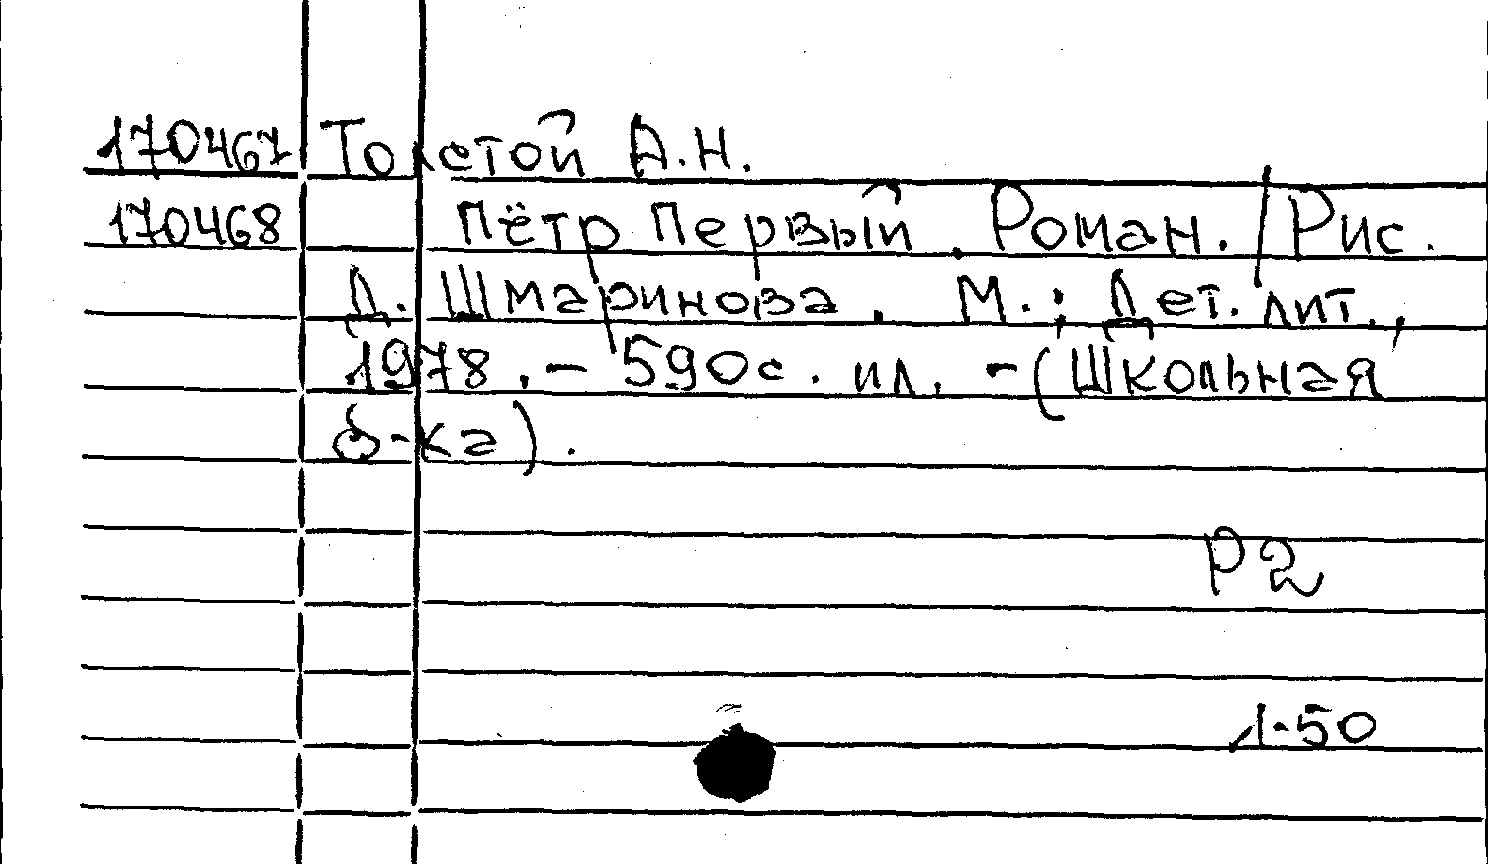 170467 Толстой А.Н.
170468 Пётр Первый. Роман. / Рис.
Д. Шмаринова. М.: Дет. лит.,
1978. - 590с. ил. - (Школьная
б-ка).
Р2
1-50